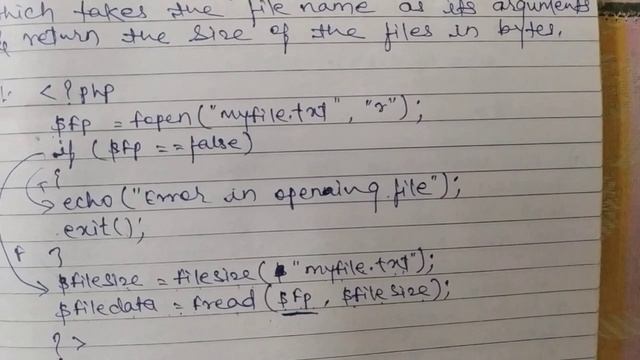 which takes the file name as its arguments
& return the size of the files in bytes.
1. <?php
$fp = fopen("myfile.txt", "r");
if ($fp == false)
T {
echo("Error in openaing file");
exit();
F }
$filesize = filesize("myfile.txt");
$filedata = fread($fp, $filesize);
?>